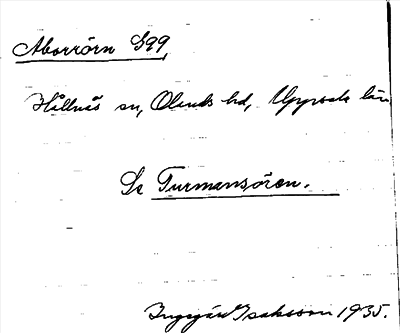 Aborrörn S99,
Hållnäs sn, Olands hd, Uppsala län
Se Turmansören.
Ingegärd Isaksson 1935.